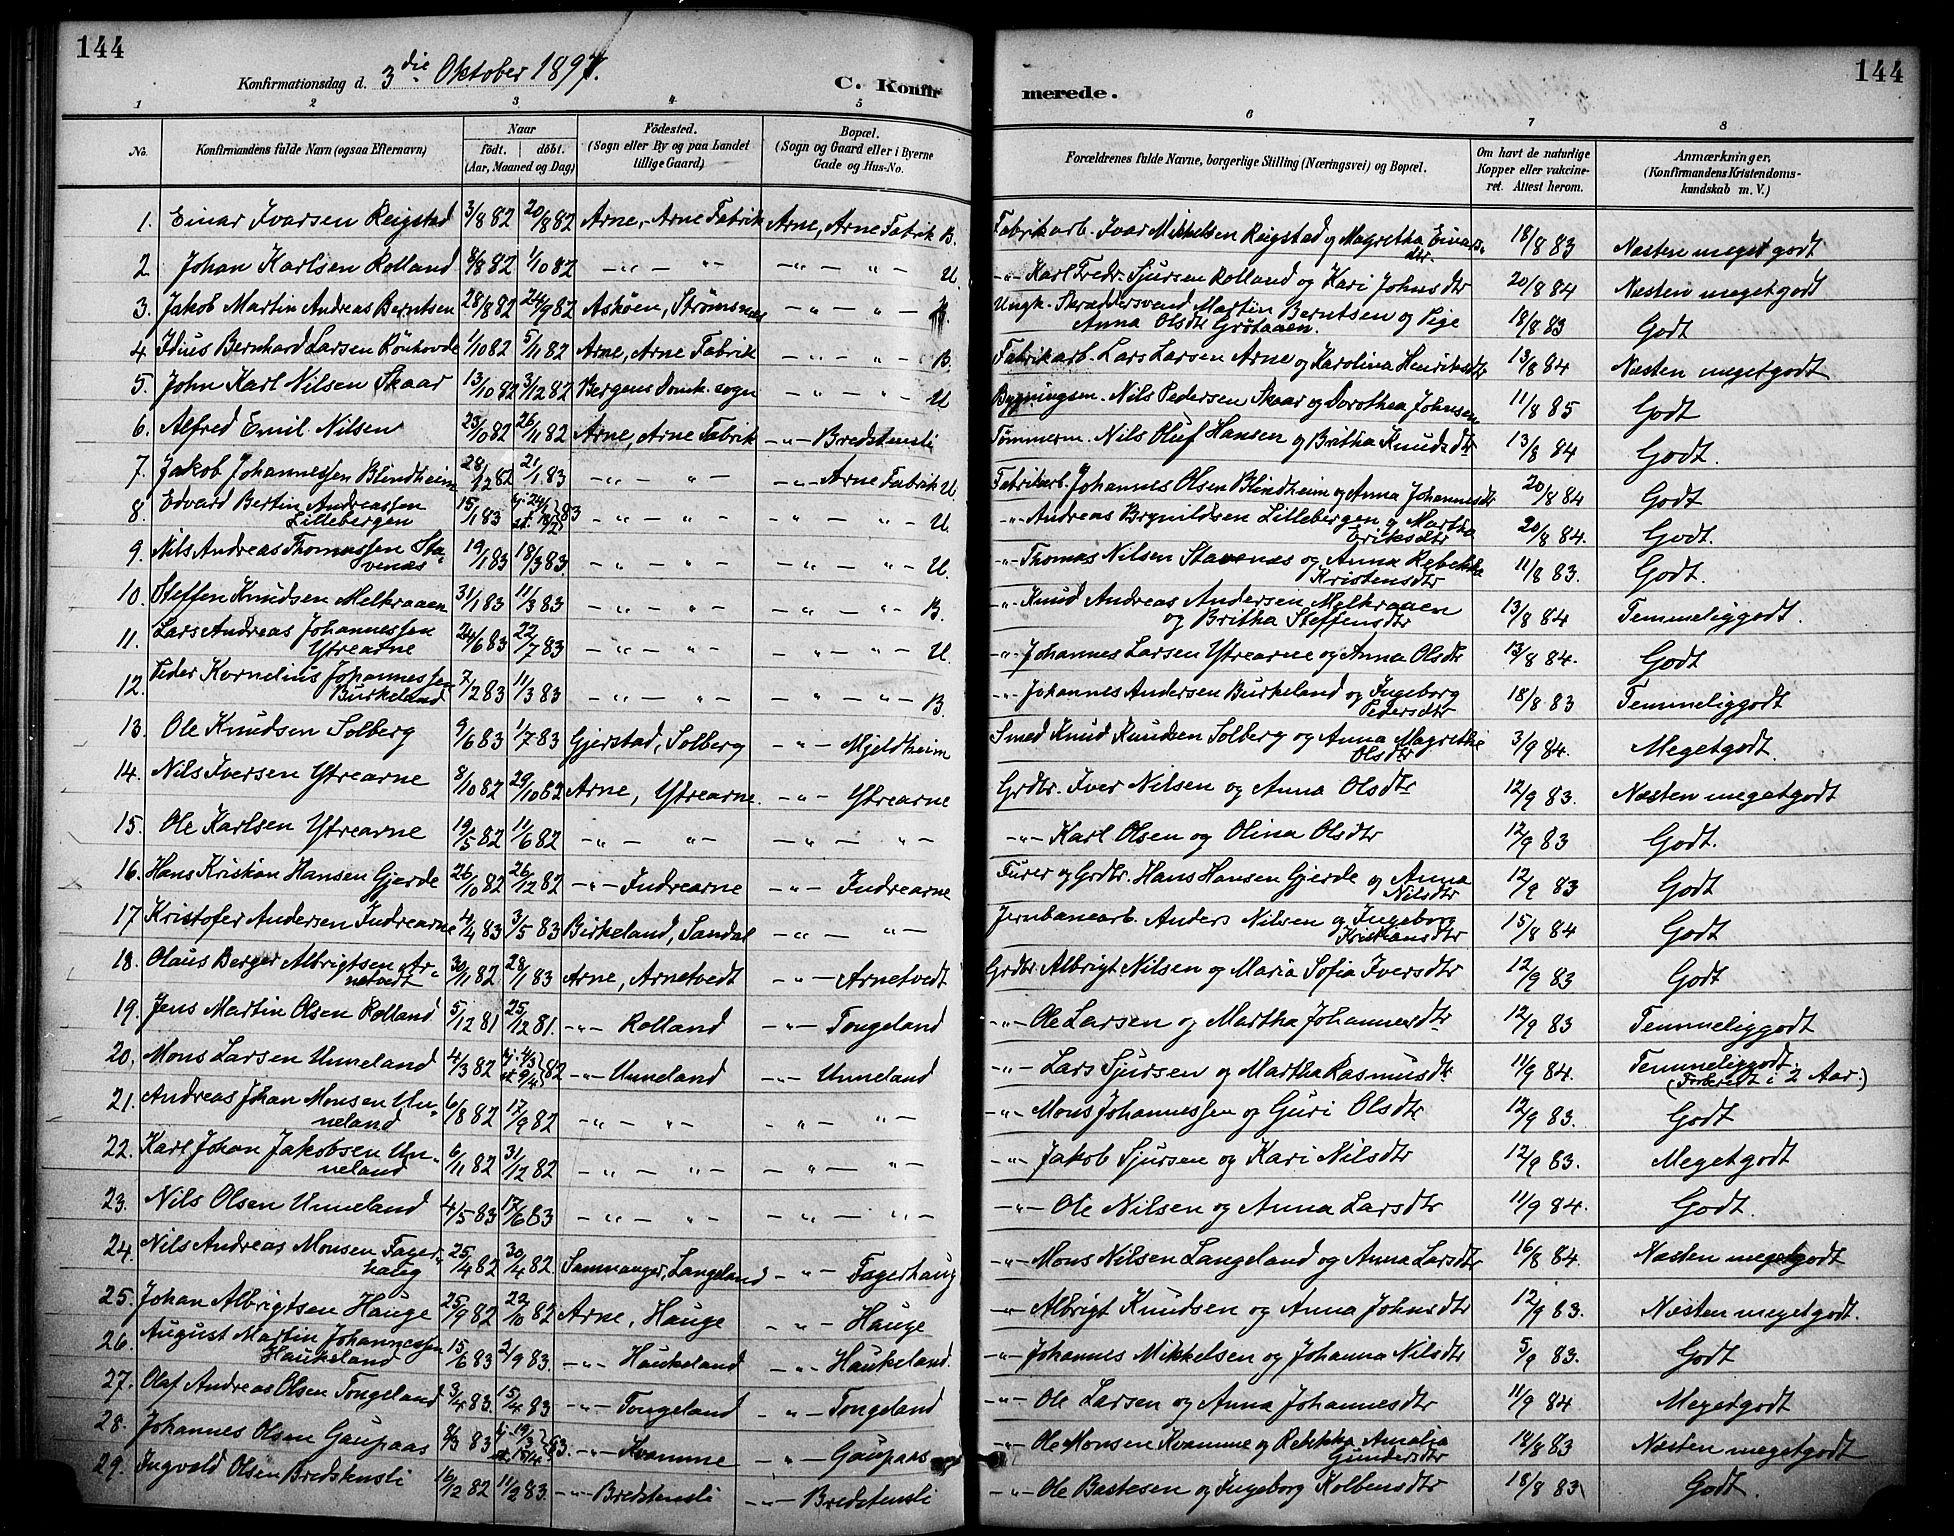 144
144
Konfirmationsdag d. 3die Oktober 1897.
C. Konfirmerede.
1 2 3 4 5 6 7 8
No. Konfirmandens fulde Navn (ogsaa Efternavn) Naar födt. döbt. (Aar, Maaned og Dag) Födested. (Sogn eller By og paa Landet tillige Gaard) Bopæl. (Sogn og Gaard eller i Byerne Gade og Hus-No. Forældrenes fulde Navne, borgerlige Stilling (Næringsvei) og Bopæl. Om havt de naturlige Kopper eller vakcineret. Attest herom. Anmærkninger, (Konfirmandens Kristendomskundskab m. V.)
1. Einar Ivarsen Reigstad 3/8 82 20/8 82 Arne, Arne Fabrik Arne, Arne Fabrik B. Fabrikarb. Ivar Mikkelsen Reigstad og Magretha Einarsdtr. 18/8 83 Næsten meget godt
2 Johan Karlsen Rolland 8/8 82 1/10 82 -"- -"- -"- -"- U. -"- Karl Fredr. Sjursen Rolland og Kari Johnsdtr 20/8 84 Næsten megetgodt
3. Jakob Martin Andreas Berntsen 28/8 82 24/9 82 Askøen, Strømsnes -"- -"- B. Ungk. Skræddersvend Martin Berntsen og Pige Anna Olsdtr Grøtaaen. 18/8 83 Godt
4. Idius Bernhard Larsen Rönhovde 1/10 82 5/11 82 Arne, Arne Fabrik -"- -"- B. Fabrikarb. Lars Larsen Arne og Karolina Henriksdtr 13/8 84 Næsten megetgodt
5. John Karl Nilsen Skaar 13/10 82 3/12 82 Bergens Domk. sogn -"- -"- U Bygningsm. Nils Pedersen Skaar og Dorothea Johnsen 11/8 85 Godt
6. Alfred Emil Nilsen 23/10 82 26/11 82 Arne, Arne Fabrik -"- Bredstensli Tømmerm. Nils Oluf Hansen og Britha Knudsdtr 13/8 84 Godt.
7. Jakob Johannessen Blindheim 28/12 82 21/1 83 -"- -"- -"- Arne Fabrik U. Fabrikarb. Johannes Olsen Blindheim og Anna Johannesdtr 20/8 84 Godt
8. Edvard Bertin Andreassen Lillebergen 15/1 83 hj. 24/1 st. 18/2 } 83 -"- -"- -"- -"- U. -"- Andreas Brynildsen Lillebergen og Martha Eriksdtr 20/8 84. Godt.
9. Nils Andreas Thomassen Stavenæs 19/1 83 18/3 83. -"- -"- -"- -"- U. -"- Thomas Nilsen Stavenæs og Anna Rebekka Kristensdtr 11/8 83. Godt.
10. Steffen Knudsen Melkraaen 31/1 83 11/3 83 -"- -"- -"- -"- B. -"- Knud Andreas Andersen Melkraaen og Britha Steffensdtr 13/8 84 Temmeliggodt.
11. Lars Andreas Johannessen Ytrearne 24/6 83 22/7 83 -"- -"- -"- -"- U. -"- Johannes Larsen Ytrearne og Anna Olsdtr 13/8 84. Godt
12. Peder Kornelius Johannessen Burkeland 7/2 83 11/3 83 -"- -"- -"- -"- B. -"- Johannes Andersen Burkeland og Ingeborg Pedersdtr 18/8 83 Temmeliggodt
13. Ole Knudsen Solberg 9/6 83 1/7 83 Gjerstad, Solberg -"- Mjeldheim Smed Knud Knudsen Solberg og Anna Magrethe Olsdtr 3/9 84. Megetgodt.
14. Nils Iversen Ytrearne 8/10 82 29/10 82 Arne, Ytrearne. -"- Ytrearne Grdbr. Iver Nilsen og Anna Olsdtr 12/9 83. Næsten megetgodt
15. Ole Karlsen Ytrearne 19/5 82 11/6 82 -"- -"- -"- -"- -"- Karl Olsen og Olina Olsdtr 12/9 83 Godt.
16. Hans Kristian Hansen Gjerde 26/10 82 26/12 82 -"- Indrearne -"- Indrearne Furer og Grdbr. Hans Hansen Gjerde og Anna Nilsdtr 12/9 83 Godt
17 Kristofer Andersen Indrearne 4/4 83 3/5 83 Birkeland, Sandal -"- -"- Jernbanearb. Anders Nilsen og Ingeborg Kristiansdtr 15/8 84 Godt
18. Olaus Berger Albrigtsen Arnetvedt 30/11 82 28/1 83 Arne, Arnetvedt -"- Arnetvedt Grdbr. Albrigt Nilsen og Maria Sofia Iversdtr 12/9 83 Godt
19. Jens Martin Olsen Rolland 5/12 81 25/12 81. -"- Rolland -"- Tongeland -"- Ole Larsen og Martha Johannesdtr 12/9 83 Temmeliggodt
20. Mons Larsen Unneland 4/3 82 hj. 4/3 st. 9/4 } 82 -"- Unneland -"- Unneland -"- Lars Sjursen og Martha Rasmusdtr 11/9 84. Temmeliggodt. (Forberedt i 2 Aar.)
21. Andreas Johan Monsen Unneland 6/8 82 17/9 82 -"- -"- -"- -"- -"- Mons Johannessen og Guri Olsdtr 12/9 83. Godt
22. Karl Johan Jakobsen Unneland 6/11 82 31/12 82 -"- -"- -"- -"- -"- Jakob Sjursen og Kari Nilsdtr 12/9 83. Megetgodt
23. Nils Olsen Unneland 4/5 83 17/6 83 -"- -"- -"- -"- -"- Ole Nilsen og Anna Larsdtr 11/9 84. Godt.
24. Nils Andreas Monsen Fagerhaug 25/4 82 30/4 82. Sammanger, Langeland -"- Fagerhaug -"- Mons Nilsen Langeland og Anna Larsdtr 16/8 84 Næsten megetgodt
25. Johan Albrigtsen Hauge 25/9 82 22/10 82 Arne, Hauge -"- Hauge -"- Albrigt Knudsen og Anna Johnsdtr 12/9 83. Næsten megetgodt.
26. August Martin Johannessen Haukeland 15/6 83 2/9 83. -"- Haukeland -"- Haukeland. -"- Johannes Mikkelsen og Johanna Nilsdtr 5/9 83. Godt
27. Olaf Andreas Olsen Tongeland 3/4 83. 15/4 83 -"- Tongeland -"- Tongeland -"- Ole Larsen og Anna Johannesdtr 11/9 84 Megetgodt
28. Johannes Olsen Gaupaas 8/3 83 hj. 19/3 st. 15/4 } 83. -"- Kvamme -"- Gaupaas -"- Ole Monsen Kvamme og Rebekka Amalia Gundersdtr 12/8 83 Næsten megetgodt
29. Ingvald Olsen Bredstensli 16/12 82 11/2 83. -"- Bredstensli -"- Bredstensli -"- Ole Bastesen og Ingeborg Kolbensdtr 18/8 83 Godt.